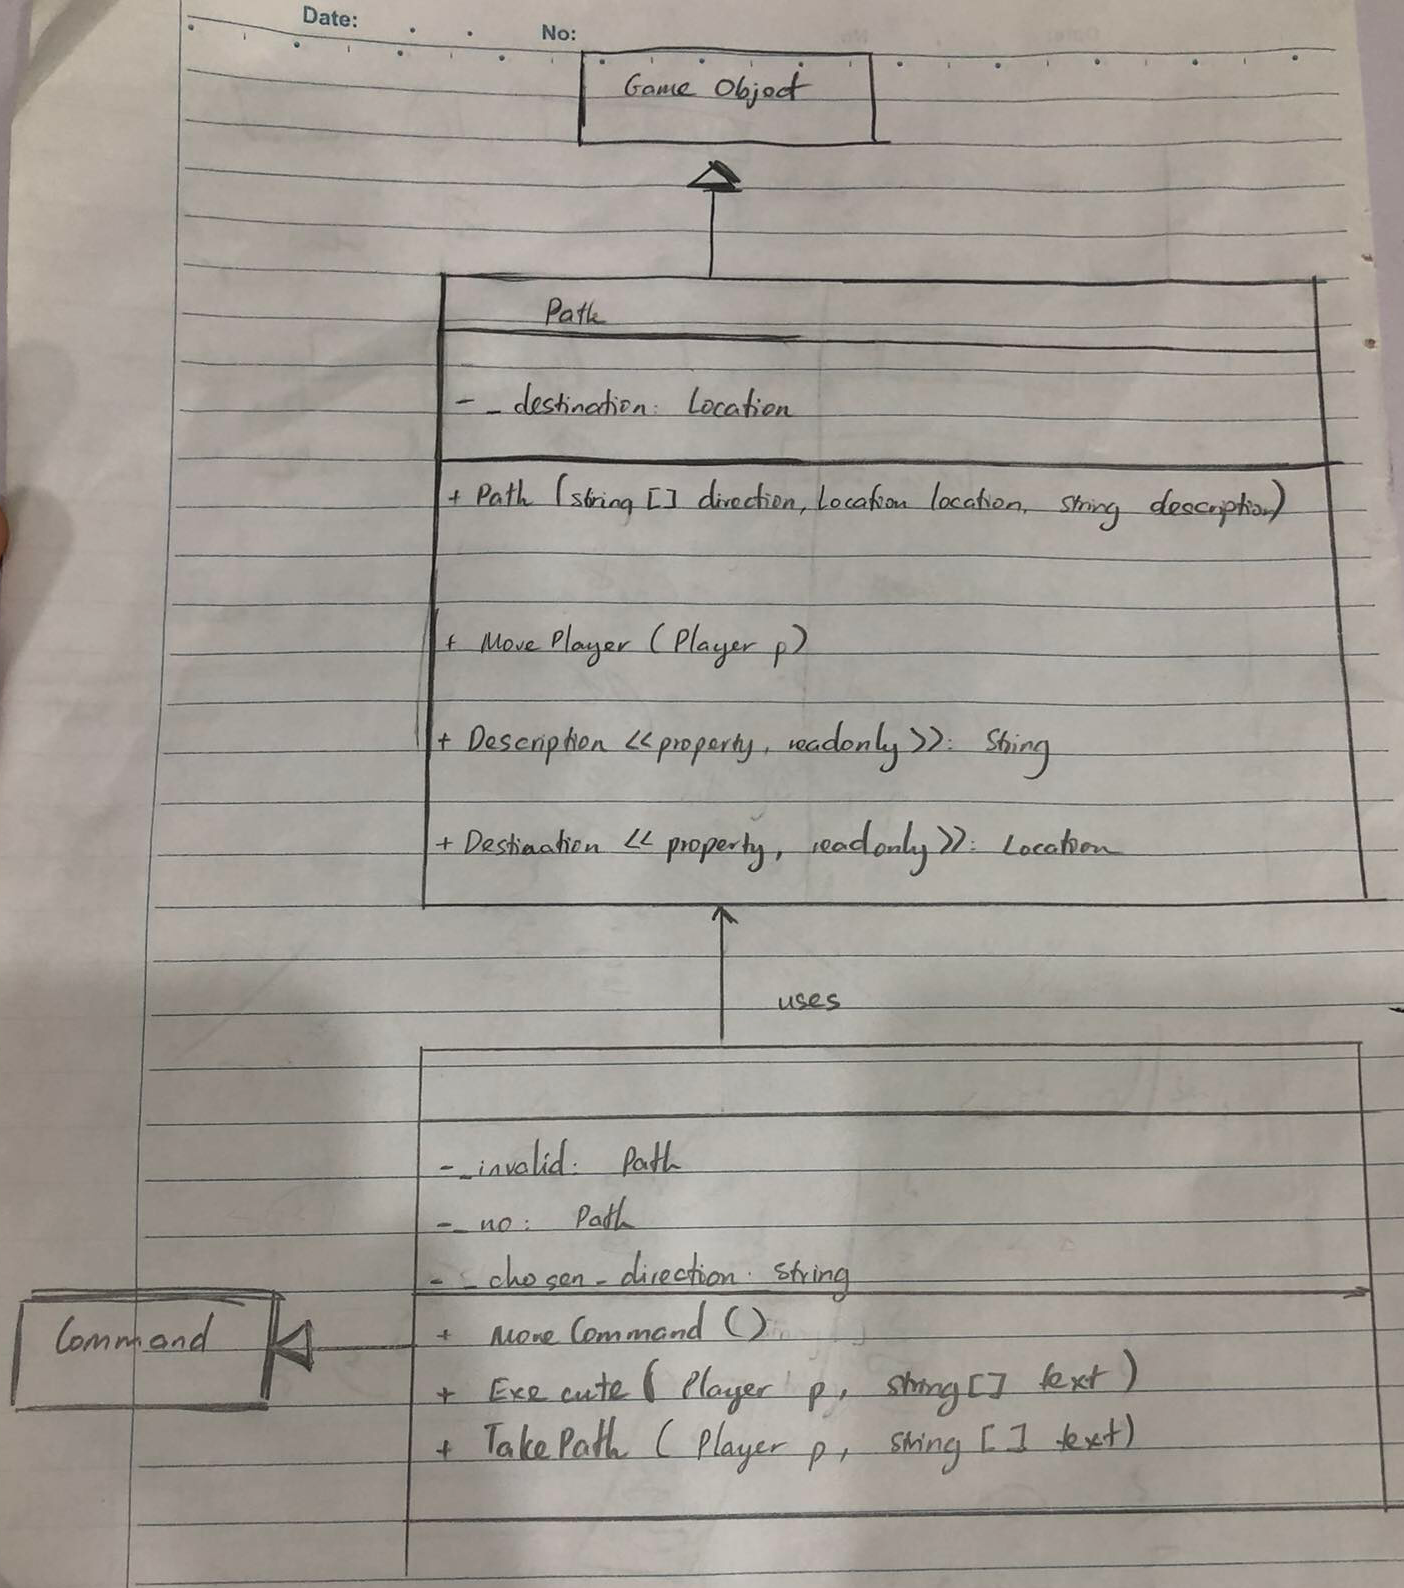 Date:
No:
Game Object
Path
- _ destination: Location
+ Path (string [] direction, Location location, string description)
+ Move Player (Player p)
+ Description <<property, readonly>>: String
+ Destination << property, readonly>>: Location
uses
- _invalid: Path
- _ no: Path
- _ chosen_direction: string
Command
+ Move Command ()
+ Execute ( Player p, string[] text )
+ Take Path ( Player p, string [] text)